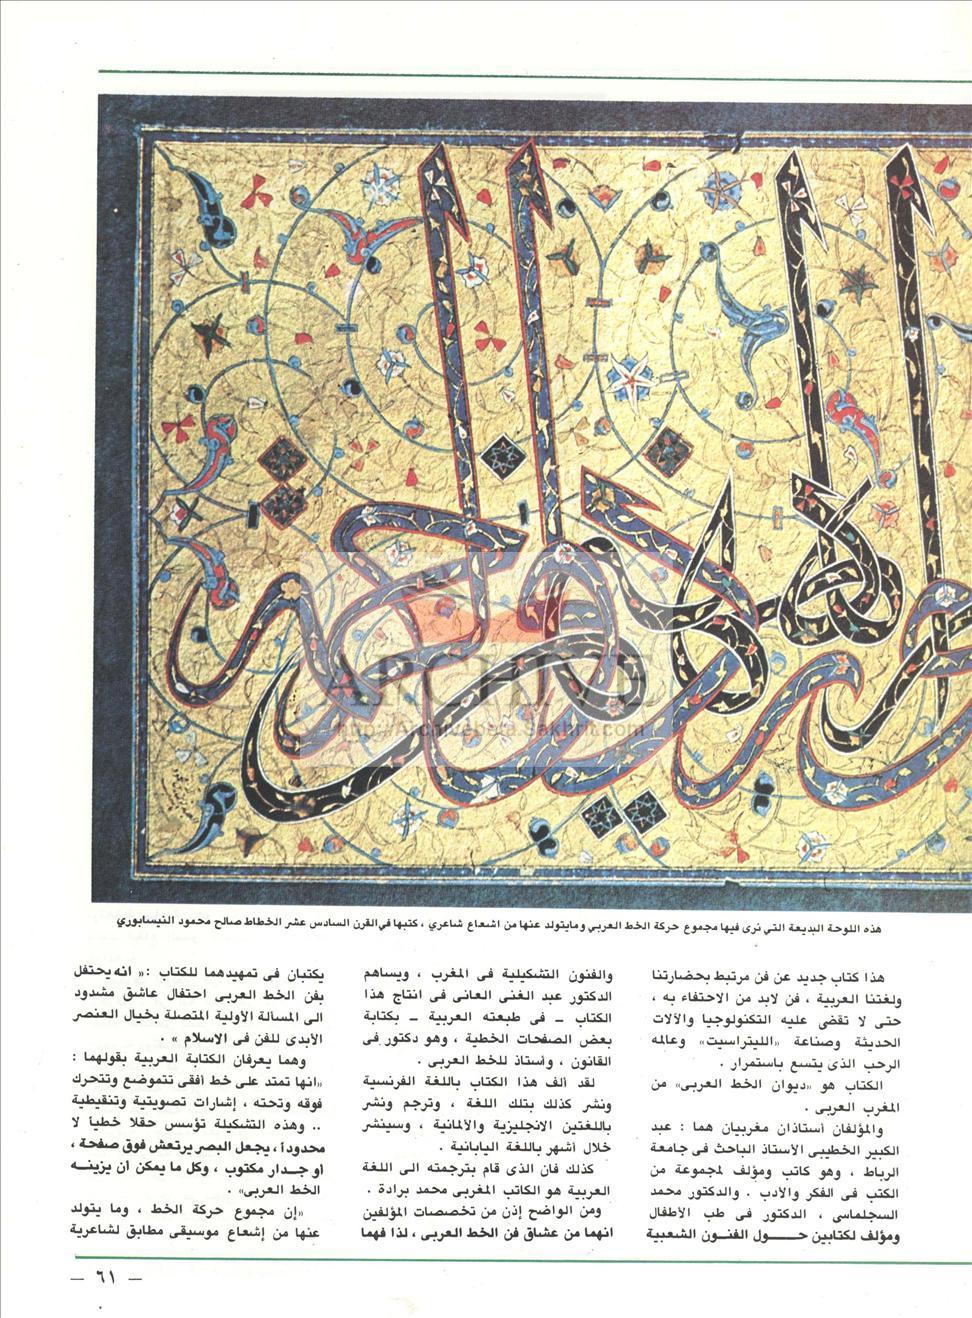 ARCHIVE
http://Archivebeta.Sakhrit.com
هذه اللوحة البديعة التي نرى فيها مجموع حركة الخط العربي ومايتولد عنها من اشعاع شاعري ، كتبها في القرن السادس عشر الخطاط صالح محمود النيسابوري
هذا كتاب جديد عن فن مرتبط بحضارتنا
ولغتنا العربية ، فن لابد من الاحتفاء به ،
حتى لا تقضى عليه التكنولوجيا والآلات
الحديثة وصناعة «الليتراسيت» وعالمه
الرحب الذى يتسع باستمرار .
الكتاب هو «ديوان الخط العربى» من
المغرب العربى .
والمؤلفان أستاذان مغربيان هما : عبد
الكبير الخطيبى الأستاذ الباحث فى جامعة
الرباط ، وهو كاتب ومؤلف لمجموعة من
الكتب فى الفكر والأدب . والدكتور محمد
السجلماسى ، الدكتور فى طب الأطفال
ومؤلف لكتابين حول الفنون الشعبية
والفنون التشكيلية فى المغرب ، ويساهم
الدكتور عبد الغنى العانى فى انتاج هذا
الكتاب ـ فى طبعته العربية ـ بكتابة
بعض الصفحات الخطية ، وهو دكتور فى
القانون ، وأستاذ للخط العربى .
لقد ألف هذا الكتاب باللغة الفرنسية
ونشر كذلك بتلك اللغة ، وترجم ونشر
باللغتين الانجليزية والألمانية ، وسينشر
خلال أشهر باللغة اليابانية .
كذلك فان الذى قام بترجمته الى اللغة
العربية هو الكاتب المغربى محمد برادة .
ومن الواضح إذن من تخصصات المؤلفين
انهما من عشاق فن الخط العربى ، لذا فهما
يكتبان فى تمهيدهما للكتاب :« انه يحتفل
بفن الخط العربى احتفال عاشق مشدود
الى المسألة الأولية المتصلة بخيال العنصر
الأبدى للفن فى الاسلام » .
وهما يعرفان الكتابة العربية بقولهما :
«انها تمتد على خط أفقى تتموضع وتتحرك
فوقه وتحته ، إشارات تصويتية وتنقيطية
.. وهذه التشكيلة تؤسس حقلا خطياً لا
محدوداً ، يجعل البصر يرتعش فوق صفحة ،
او جدار مكتوب ، وكل ما يمكن ان يزينه
الخط العربى» .
«إن مجموع حركة الخط ، وما يتولد
عنها من إشعاع موسيقى مطابق لشاعرية
— ٦١ —